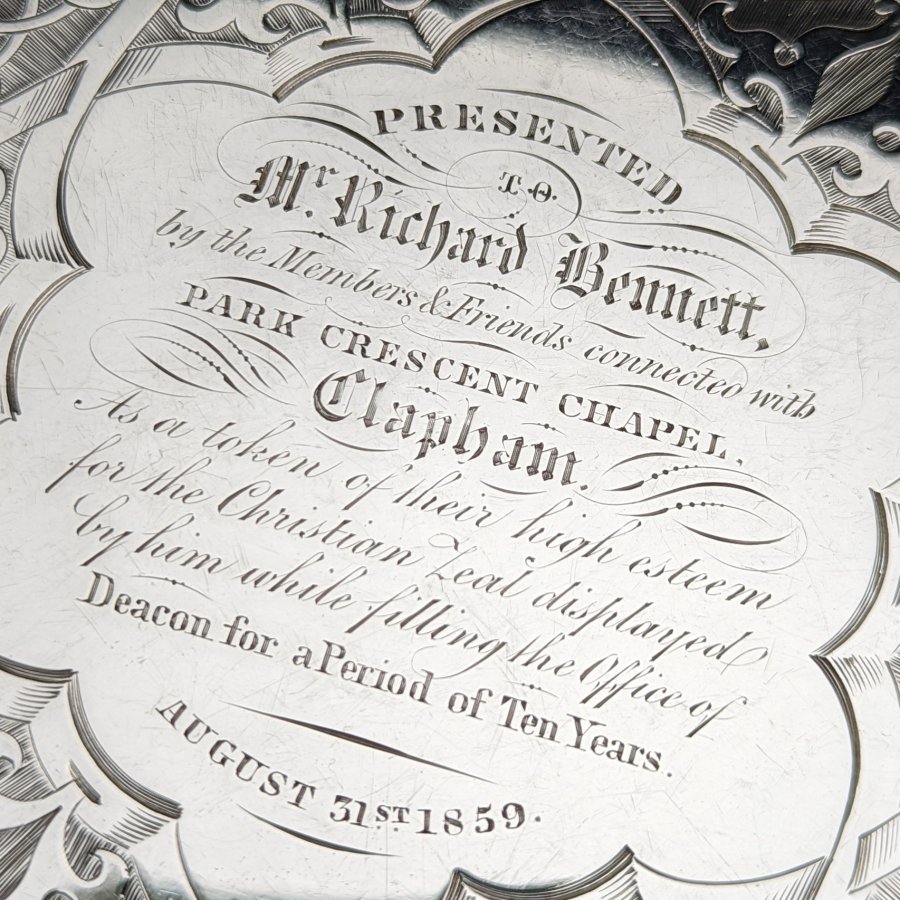 PRESENTED
TO.
Mr. Richard Bennett,
by the Members & Friends connected with
PARK CRESCENT CHAPEL,
Clapham.
As a token of their high esteem
for the Christian Zeal displayed
by him while filling the Office of
Deacon for a Period of Ten Years.
AUGUST 31ST. 1859.